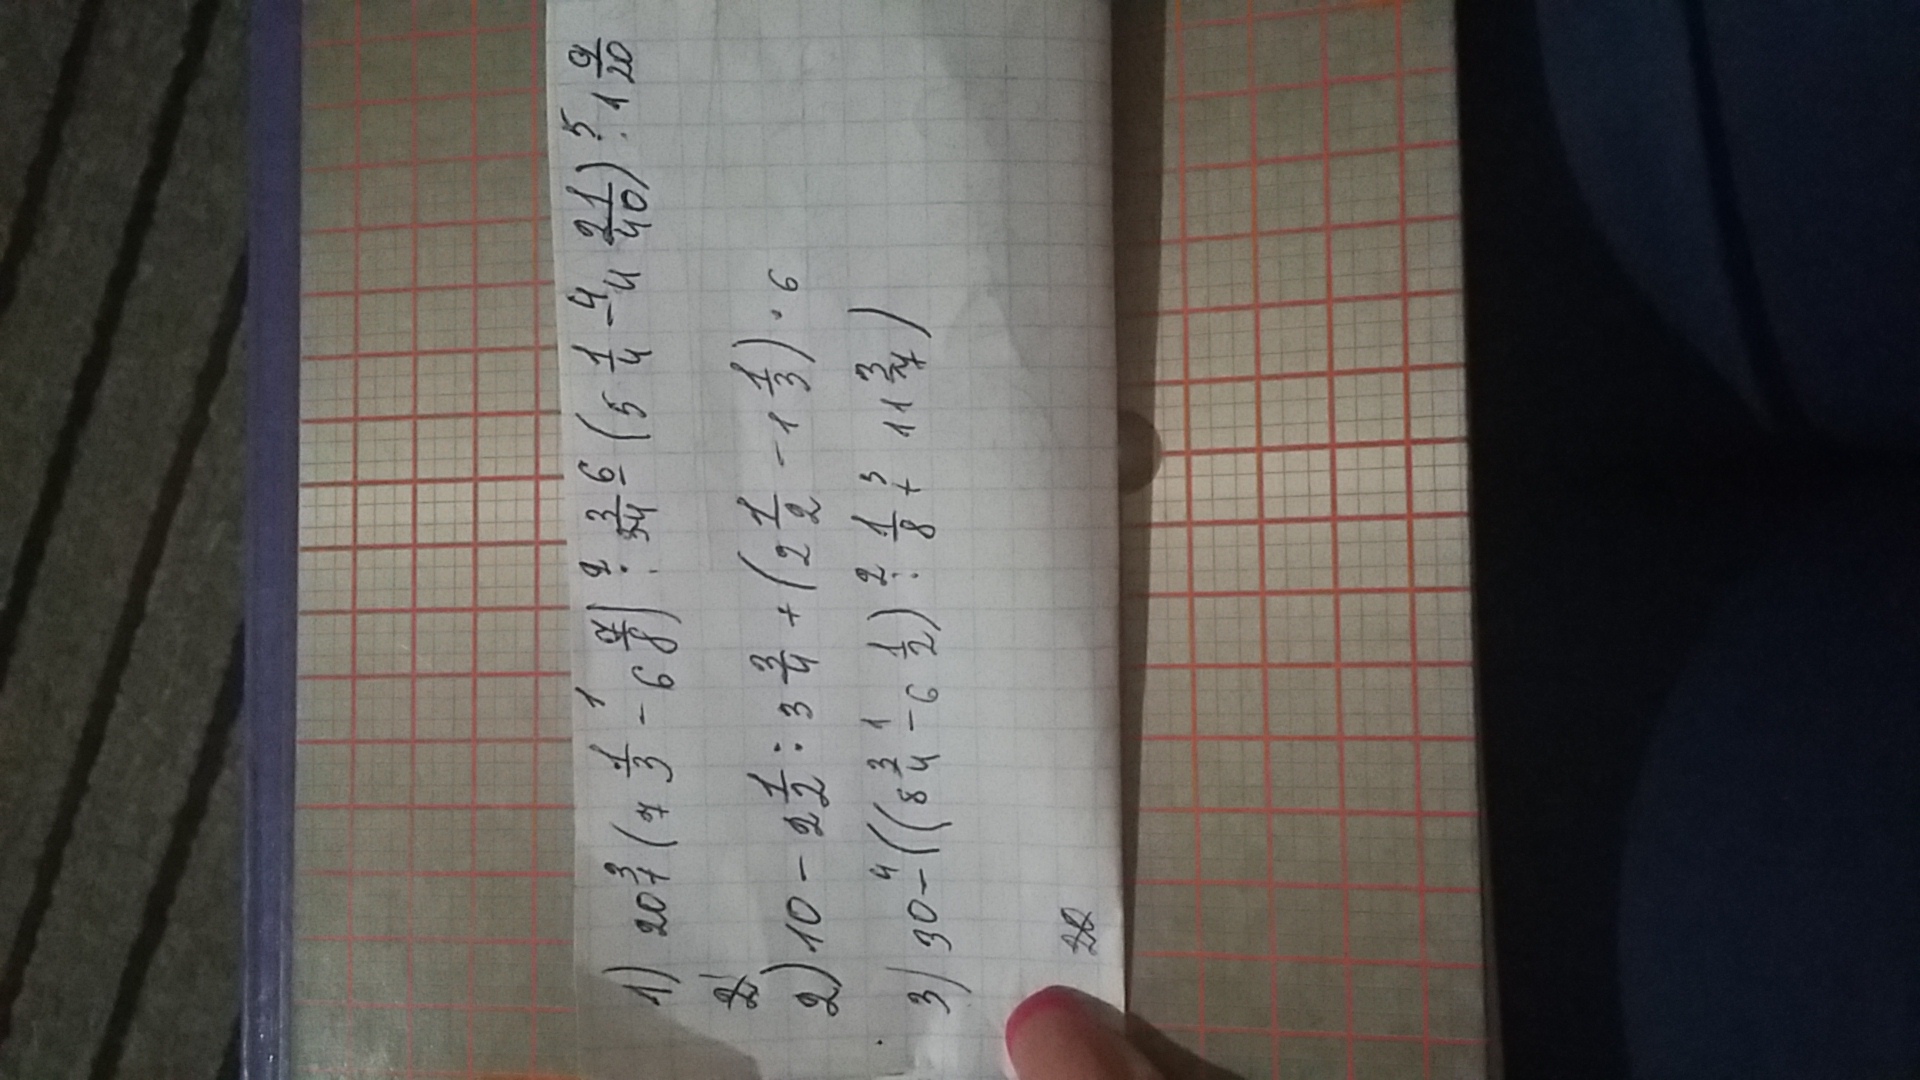 1) 20 3/7 (7 1/3 - 6 7/8) : 3 3/34 - (5 1/4 - 4 21/40) : 1 9/20
2)
2) 10 - 2 1/2 : 3 3/4 + (2 1/2 - 1 1/3) · 6
3) 30 - ((8 3/4 - 6 1/2) : 1/8 + 11 3/7)